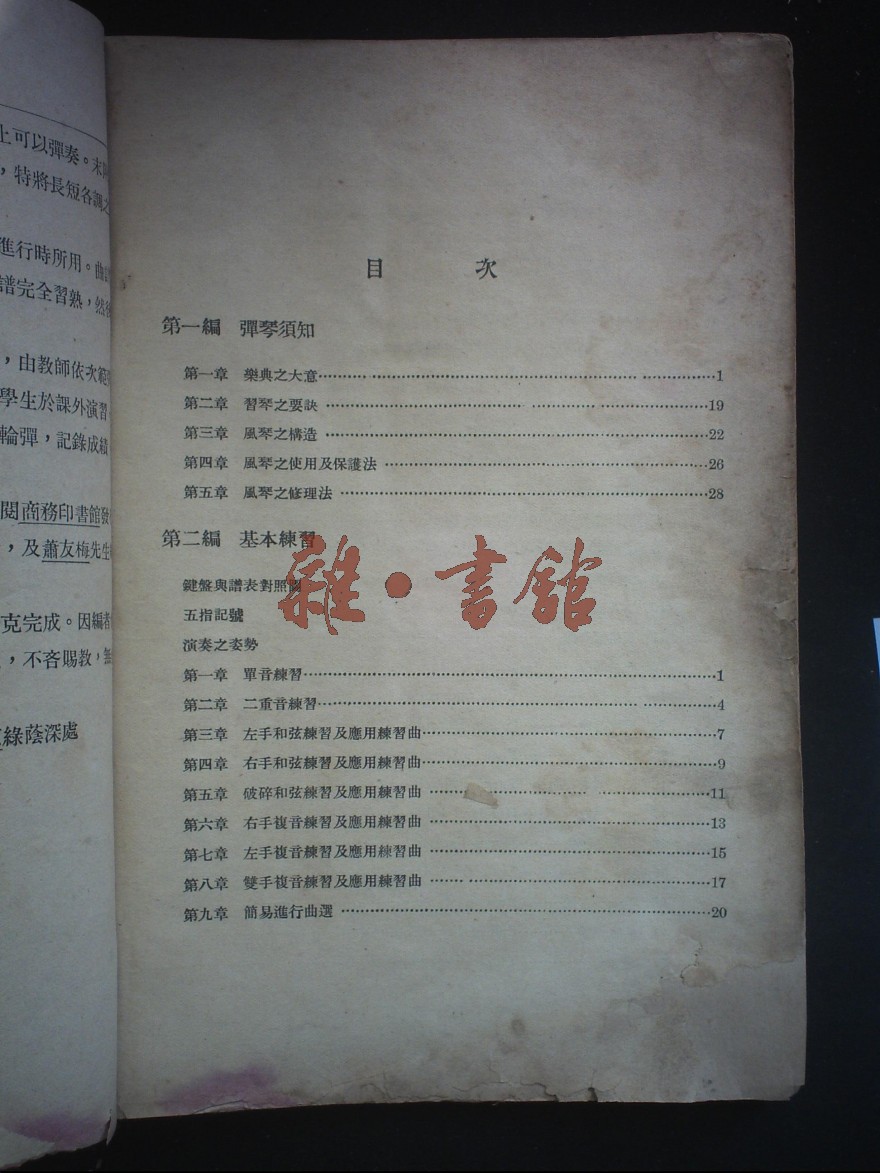 上可以彈奏。末
，特將長短各調之
進行時所用。曲
譜完全習熟，然後
，由教師依次範
學生於課外演習
輪彈，記錄成績
閱商務印書館發
，及蕭友梅先生
克完成。因編者
，不吝賜教，無
綠蔭深處
目 次
第一編 彈琴須知
第一章 樂典之大意…………1
第二章 習琴之要訣…………19
第三章 風琴之構造…………22
第四章 風琴之使用及保護法…………26
第五章 風琴之修理法…………28
第二編 基本練習
鍵盤與譜表對照圖
五指記號
演奏之姿勢
第一章 單音練習…………1
第二章 二重音練習…………4
第三章 左手和弦練習及應用練習曲…………7
第四章 右手和弦練習及應用練習曲…………9
第五章 破碎和弦練習及應用練習曲…………11
第六章 右手複音練習及應用練習曲…………13
第七章 左手複音練習及應用練習曲…………15
第八章 雙手複音練習及應用練習曲…………17
第九章 簡易進行曲選…………20
雜·書館